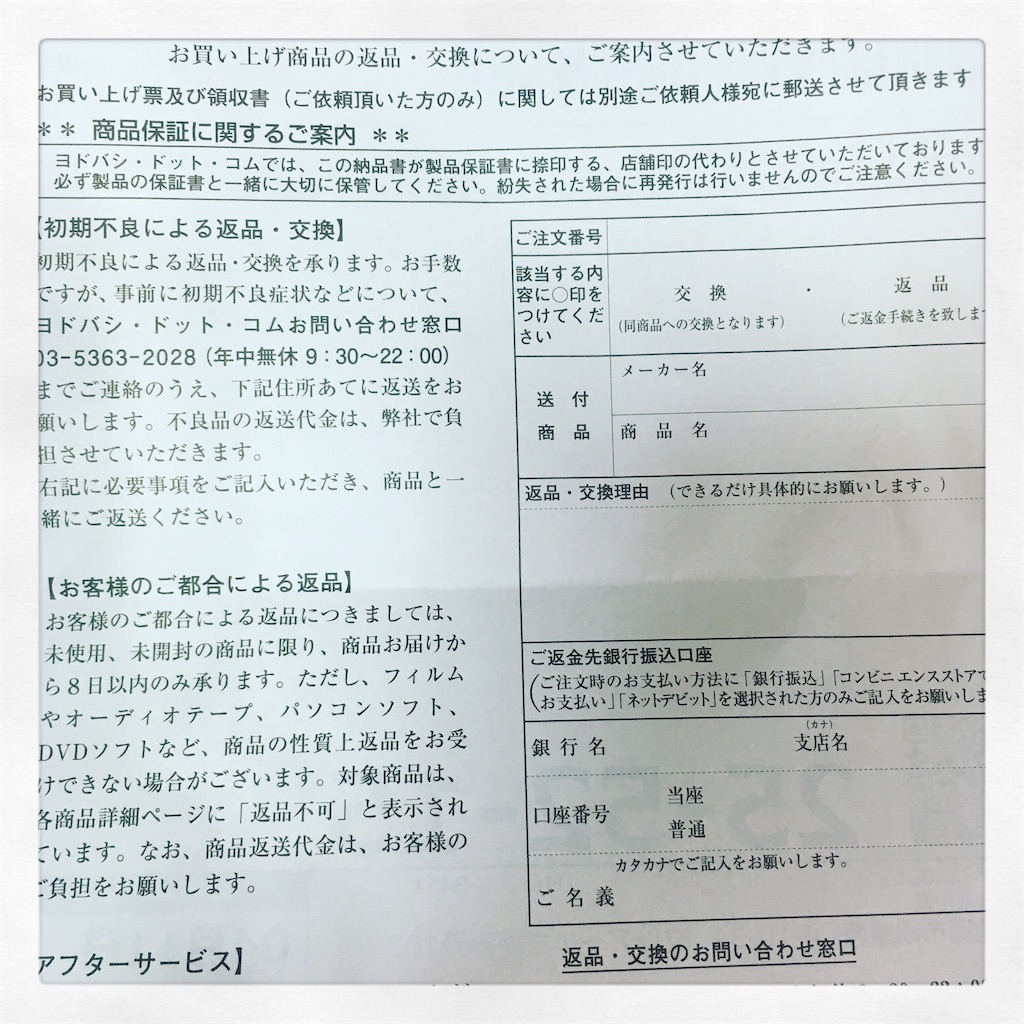 お買い上げ商品の返品・交換について、ご案内させていただきます。
お買い上げ票及び領収書（ご依頼頂いた方のみ）に関しては別途ご依頼人様宛に郵送させて頂きます
＊＊ 商品保証に関するご案内 ＊＊
ヨドバシ・ドット・コムでは、この納品書が製品保証書に捺印する、店舗印の代わりとさせていただいております
必ず製品の保証書と一緒に大切に保管してください。紛失された場合に再発行は行いませんのでご注意ください。
【初期不良による返品・交換】
初期不良による返品・交換を承ります。お手数
ですが、事前に初期不良症状などについて、
ヨドバシ・ドット・コムお問い合わせ窓口
03-5363-2028（年中無休 9：30～22：00）
までご連絡のうえ、下記住所あてに返送をお
願いします。不良品の返送代金は、弊社で負
担させていただきます。
右記に必要事項をご記入いただき、商品と一
緒にご返送ください。
【お客様のご都合による返品】
お客様のご都合による返品につきましては、
未使用、未開封の商品に限り、商品お届けか
ら８日以内のみ承ります。ただし、フィルム
やオーディオテープ、パソコンソフト、
DVDソフトなど、商品の性質上返品をお受
けできない場合がございます。対象商品は、
各商品詳細ページに「返品不可」と表示され
ています。なお、商品返送代金は、お客様の
ご負担をお願いします。
アフターサービス】
ご注文番号
該当する内
容に○印を
つけてくだ
さい
交 換 ・ 返 品
（同商品への交換となります） （ご返金手続きを致しま
送 付
商 品
メーカー名
商 品 名
返品・交換理由 （できるだけ具体的にお願いします。）
ご返金先銀行振込口座
（ご注文時のお支払い方法に「銀行振込」「コンビニエンスストアで
お支払い」「ネットデビット」を選択された方のみご記入をお願いしま
銀 行 名 （カナ） 支店名
口座番号 当座
普通
カタカナでご記入をお願いします。
ご 名 義
返品・交換のお問い合わせ窓口